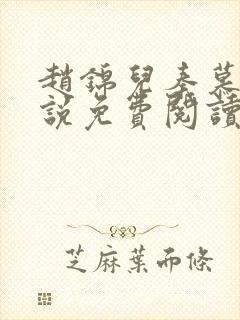 趙錦兒秦慕
說免費閱讀
芝麻葉而條